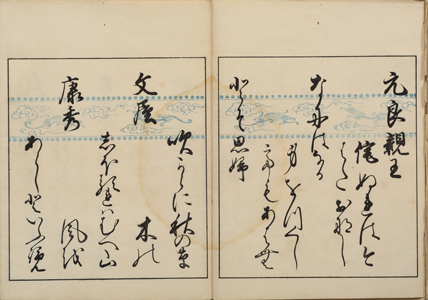 元良親王
侘ぬれは今
はたおなし
なにはなる
身をつくし
てもあはむ
とそ思婦
吹からに秋の草
文屋
木の
しほるれはむへ山
康秀
風を
あらしといふ覧